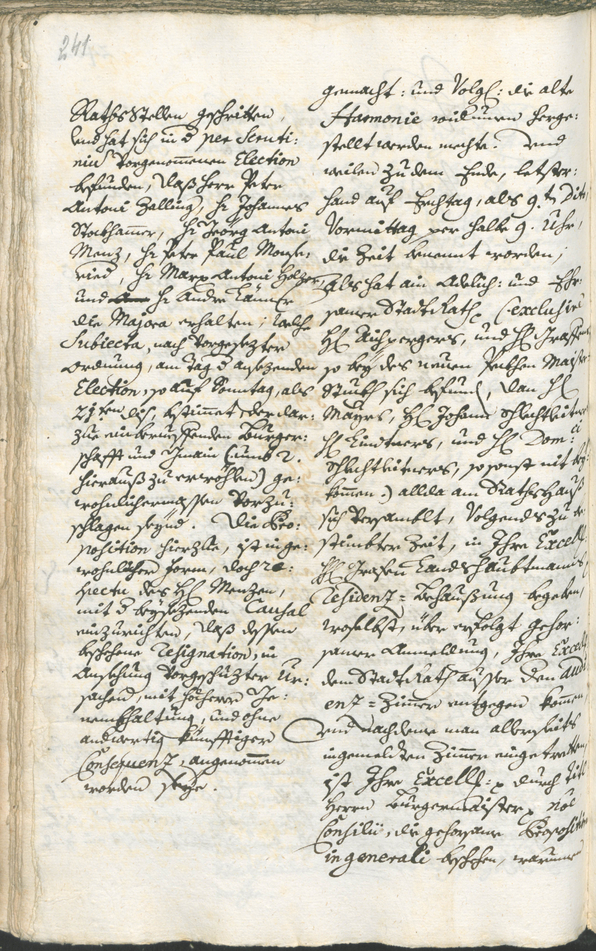 241
RathsStellen geschritten,
Und hat sich in d per Scruti:
nium Vorgenommenen Election
befunden, daß Herr Peter
Antoni Zalling, H: Johannes
Stockhamer, H: Georg Antoni
Menz, H: Peter Paul
H: Marx Antoni Holzer
und H: Andre
die Majora erhalten; welche
Subiecta, nach Vorgesezter
Ordnung, am Tag d ansezenden
Election, so auf Sonntag, als
27ten dis, bestimmet, der dar:
zue einberueffenden Burger:
schafft und Gmain (umb 2.
hierauß zu erwöhlen) ge:
wohnlichermassen Vorzu:
schlagen seynd. Die Pro:
position hierzue, ist in ge:
wohnlicher Form, doch re:
spectu des H: Menzen,
mit d beysezenden Causal
einzurichten, daß dessen
beschehene Resignation, in
Ansehung Vorgeschuzter Ur:
sachen, mit höcherer Ge:
nembhaltung, und ohne
anderwertig künfftiger
Consequenz, angenomen
worden seye.
gemacht: und Volgl: die alte
Harmonie widumen herge:
stellt werden mechte. Und
weilen zu dem Ende, letster:
hand auf Erchtag, als 9.t dits
Vormittag per halbe 9. Uhr,
die Zeit benennt worden;
Als hat ain Adelich: und Ehr:
samer StadtRath (: exclusive
H: Aichpergers, und H:
so bey des neuen Probsten
sich befund, dan H:
Mayrs, H: Johann Schlechtleitner
H: Lindners, und H: Domi:
Schlechtleitners, so sonst nit
komen:) allda am Rathshauß
sich Versamblt, Volgends zu be:
stimbter Zeit, in Ihre Excell:
H: Grafens Landshaubtmanns
Residenz=Behaußung begeben,
woselbst, über erfolgt gehor:
samer Anmeldung, Ihre Excell:
dem StadtRath ausser den Audi
enz=Zimer entgegen komen,
Und nachdeme man allerseits
ingemelten Zimer eingetretten,
ist Ihre Excell: durch Titl
Herrn Burgermaister, noe
Consilii, die gehorsame Proposition
in generali beschehen, warumen